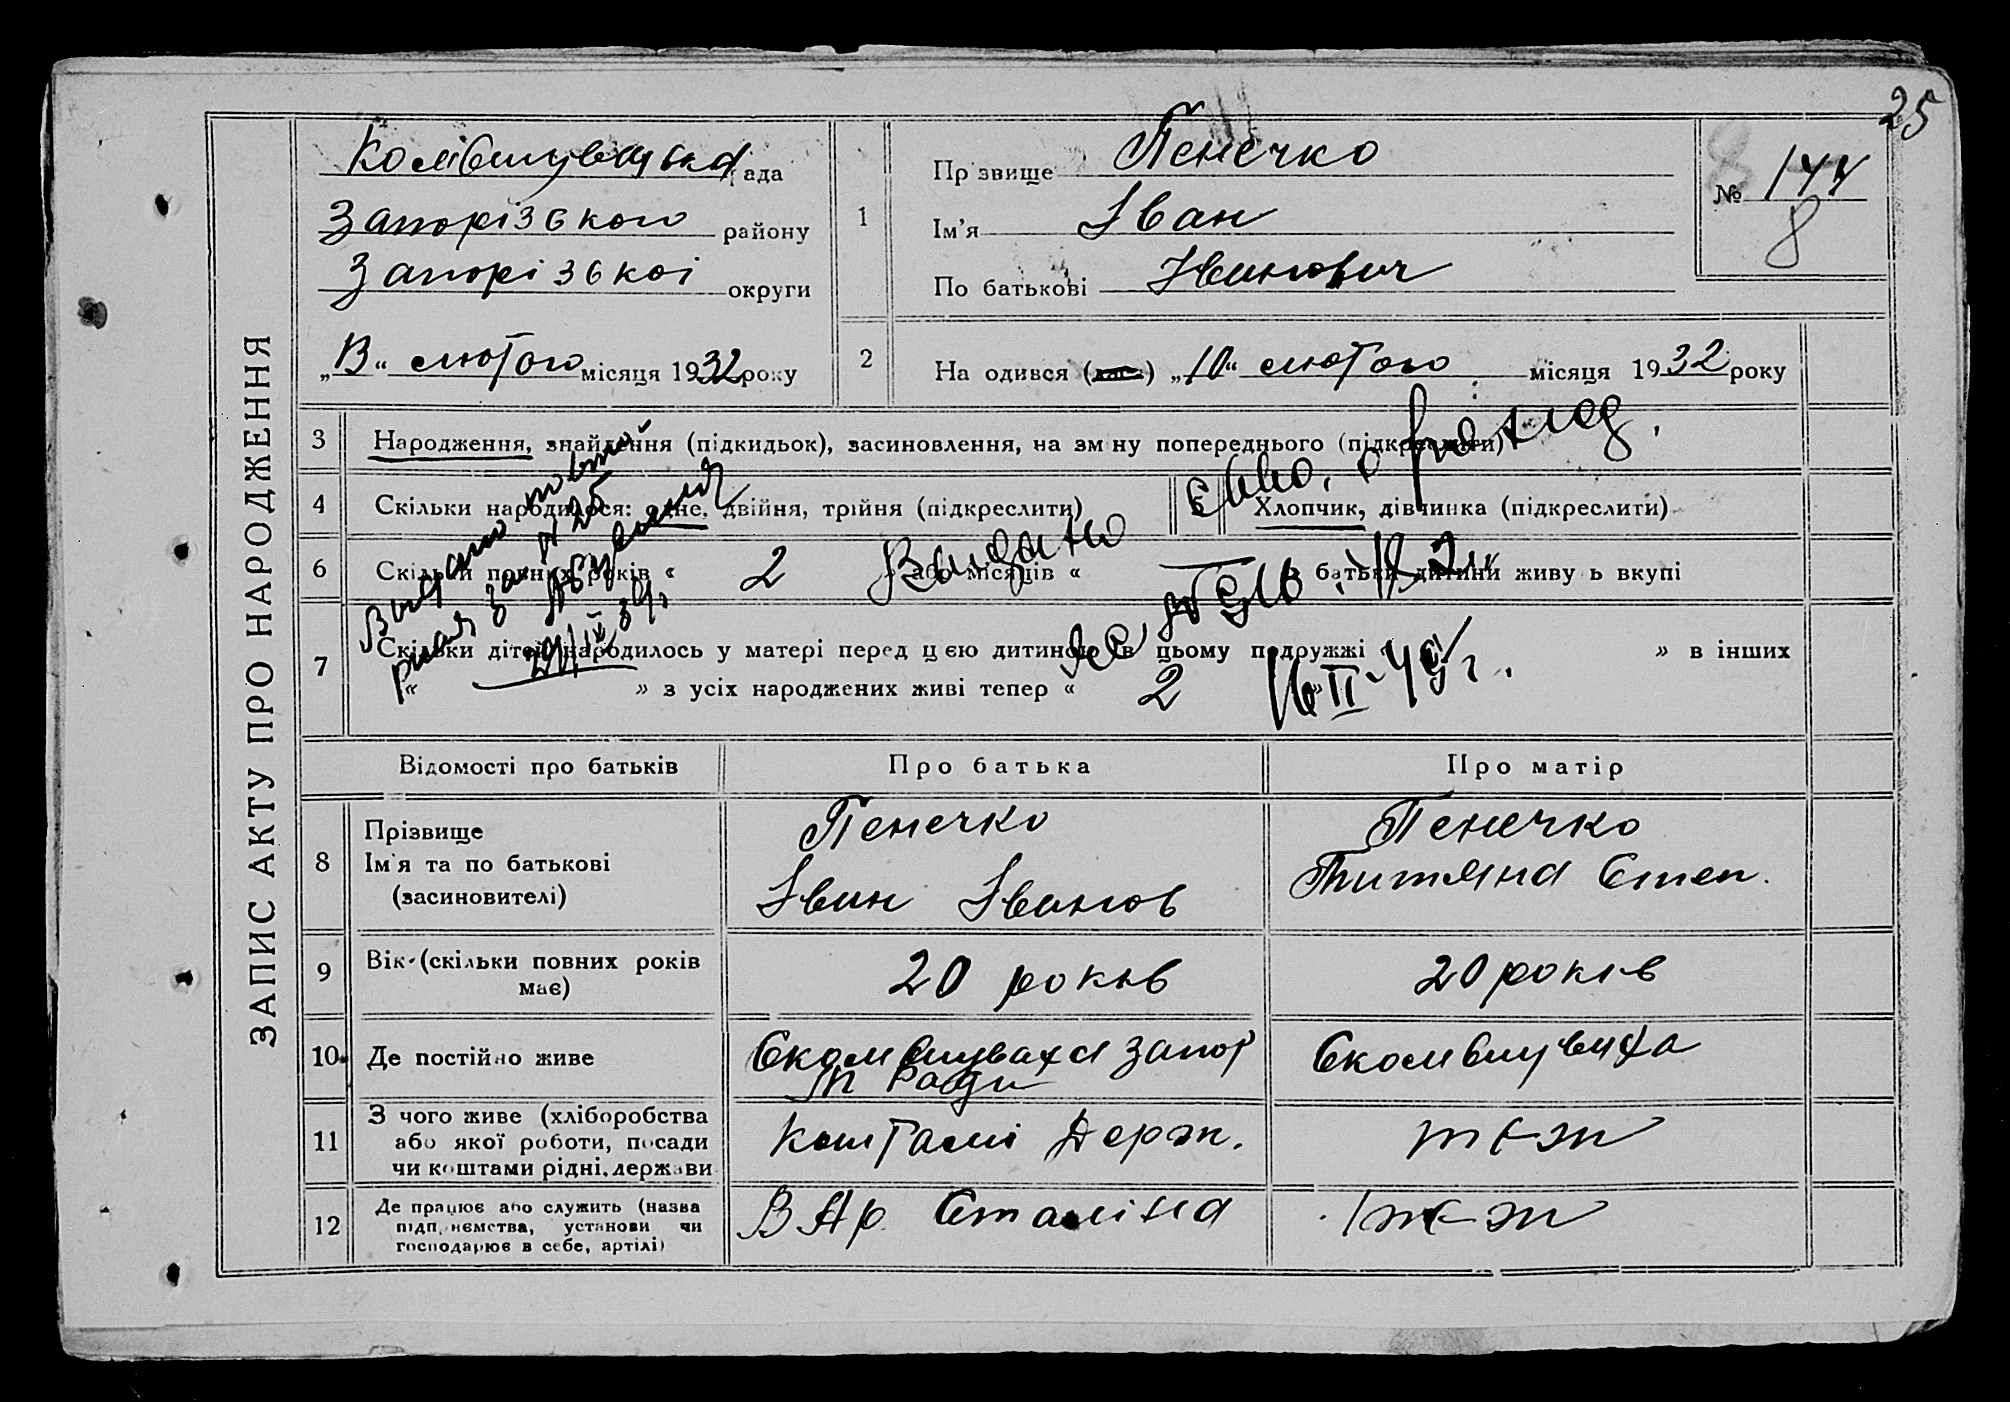 25
ЗАПИС АКТУ ПРО НАРОДЖЕННЯ
Комишувська рада
Запорізького району
Запорізької округи
"13" лютого місяця 1932 року
1
Прізвище Пенечко
Ім'я Іван
По батькові Иванович
№ 144
8
2
На одився „10" лютого місяця 1932 року
3 Народження, знайдення (підкидьок), засиновлення, на зм ну попереднього (підкреслити)
4 Скільки народилося: одне, двійня, трійня (підкреслити)
5 Хлопчик, дівчинка (підкреслити)
6 Скільки повних років « 2 » або місяців « — » батьки дитини живу ь вкупі
7 Скільки дітей народилось у матері перед цією дитиною (в цьому подружжі « » в інших
« » з усіх народжених живі тепер « 2
Видано
за № 25
29/IX 39г.
Видано
16 II-49г.
Відомості про батьків
Про батька
Про матір
8 Прізвище
Ім'я та по батькові
(засиновителі)
Пенечко
Іван Іванов
Пенечко
Титяна Степ.
9 Вік (скільки повних років має)
20 років
20 років
10 Де постійно живе
11 З чого живе (хліборобства
або якої роботи, посади
чи коштами рідні, держави
коштами Держ.
теж
12 Де працює або служить (назва
підприємства, установи чи
господарює в себе, артілі)
В Ар. Сталіна
теж